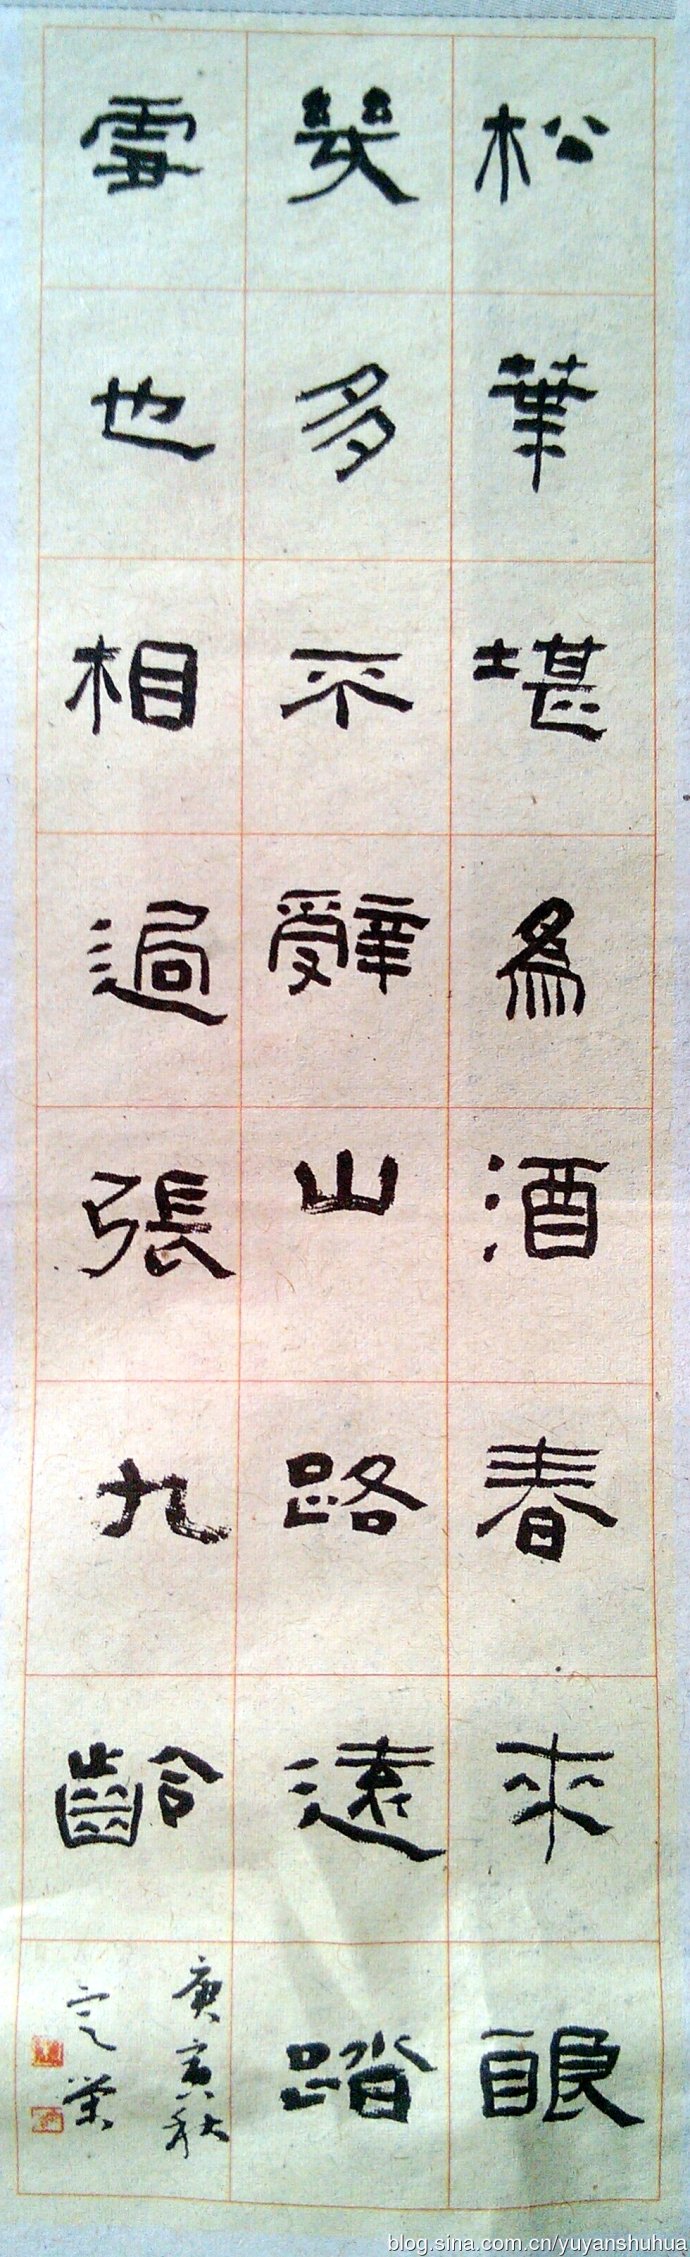 松葉堪爲酒春來酿
幾多不辭山路遠踏
雪也相過張九齡
庚寅秋
blog.sina.com.cn/yuyanshuhua